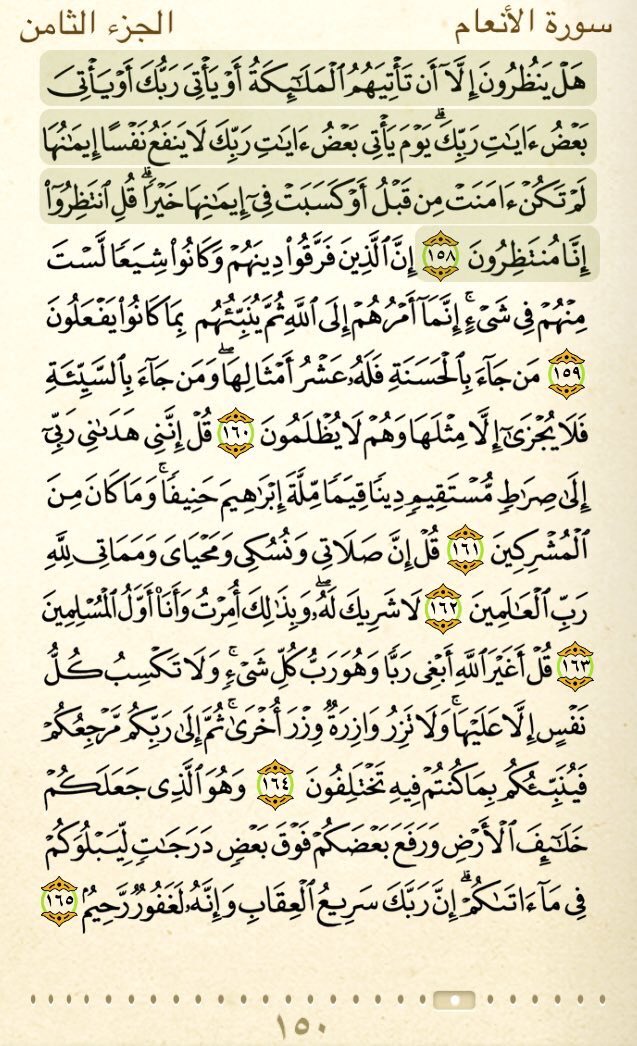 سورة الأنعام
الجزء الثامن
هَلْ يَنظُرُونَ إِلَّآ أَن تَأْتِيَهُمُ ٱلْمَلَـٰٓئِكَةُ أَوْ يَأْتِىَ رَبُّكَ أَوْ يَأْتِىَ
بَعْضُ ءَايَـٰتِ رَبِّكَ ۗ يَوْمَ يَأْتِى بَعْضُ ءَايَـٰتِ رَبِّكَ لَا يَنفَعُ نَفْسًا إِيمَـٰنُهَا
لَمْ تَكُنْ ءَامَنَتْ مِن قَبْلُ أَوْ كَسَبَتْ فِىٓ إِيمَـٰنِهَا خَيْرًا ۗ قُلِ ٱنتَظِرُوٓا۟
إِنَّا مُنتَظِرُونَ ١٥٨ إِنَّ ٱلَّذِينَ فَرَّقُوا۟ دِينَهُمْ وَكَانُوا۟ شِيَعًا لَّسْتَ
مِنْهُمْ فِى شَىْءٍ ۚ إِنَّمَآ أَمْرُهُمْ إِلَى ٱللَّهِ ثُمَّ يُنَبِّئُهُم بِمَا كَانُوا۟ يَفْعَلُونَ
١٥٩ مَن جَآءَ بِٱلْحَسَنَةِ فَلَهُۥ عَشْرُ أَمْثَالِهَا ۖ وَمَن جَآءَ بِٱلسَّيِّئَةِ
فَلَا يُجْزَىٰٓ إِلَّا مِثْلَهَا وَهُمْ لَا يُظْلَمُونَ ١٦٠ قُلْ إِنَّنِى هَدَىٰنِى رَبِّىٓ
إِلَىٰ صِرَٰطٍ مُّسْتَقِيمٍ دِينًا قِيَمًا مِّلَّةَ إِبْرَٰهِيمَ حَنِيفًا ۚ وَمَا كَانَ مِنَ
ٱلْمُشْرِكِينَ ١٦١ قُلْ إِنَّ صَلَاتِى وَنُسُكِى وَمَحْيَاىَ وَمَمَاتِى لِلَّهِ
رَبِّ ٱلْعَـٰلَمِينَ ١٦٢ لَا شَرِيكَ لَهُۥ ۖ وَبِذَٰلِكَ أُمِرْتُ وَأَنَا۠ أَوَّلُ ٱلْمُسْلِمِينَ
١٦٣ قُلْ أَغَيْرَ ٱللَّهِ أَبْغِى رَبًّا وَهُوَ رَبُّ كُلِّ شَىْءٍ ۚ وَلَا تَكْسِبُ كُلُّ
نَفْسٍ إِلَّا عَلَيْهَا ۚ وَلَا تَزِرُ وَازِرَةٌ وِزْرَ أُخْرَىٰ ۚ ثُمَّ إِلَىٰ رَبِّكُم مَّرْجِعُكُمْ
فَيُنَبِّئُكُم بِمَا كُنتُمْ فِيهِ تَخْتَلِفُونَ ١٦٤ وَهُوَ ٱلَّذِى جَعَلَكُمْ
خَلَـٰٓئِفَ ٱلْأَرْضِ وَرَفَعَ بَعْضَكُمْ فَوْقَ بَعْضٍ دَرَجَـٰتٍ لِّيَبْلُوَكُمْ
فِى مَآ ءَاتَىٰكُمْ ۗ إِنَّ رَبَّكَ سَرِيعُ ٱلْعِقَابِ وَإِنَّهُۥ لَغَفُورٌ رَّحِيمٌۢ ١٦٥
١٥٠